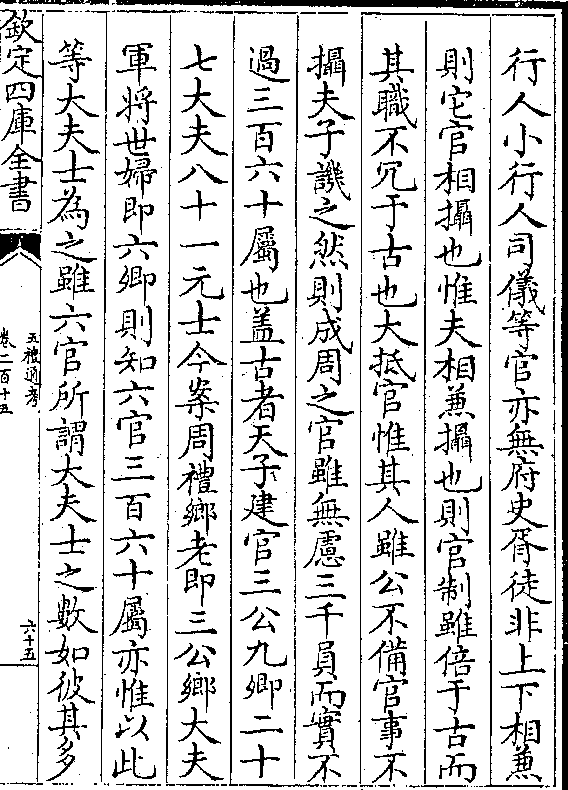 行人小行人司儀等官亦無府史胥徒非上下相兼
則它官相攝也惟夫相兼攝也則官制雖倍于古而
其職不冗于古也大抵官惟其人雖公不備官事不
攝夫子譏之然則成周之官雖無慮三千員而實不
過三百六十屬也盖古者天子建官三公九卿二十
七大夫八十一元士今案周禮鄉老即三公鄉大夫
軍將世婦即六卿則知六官三百六十屬亦惟以此
等大夫士為之雖六官所謂大夫士之數如彼其多
欽定四庫全書
五禮通考
卷二百十五
六十五